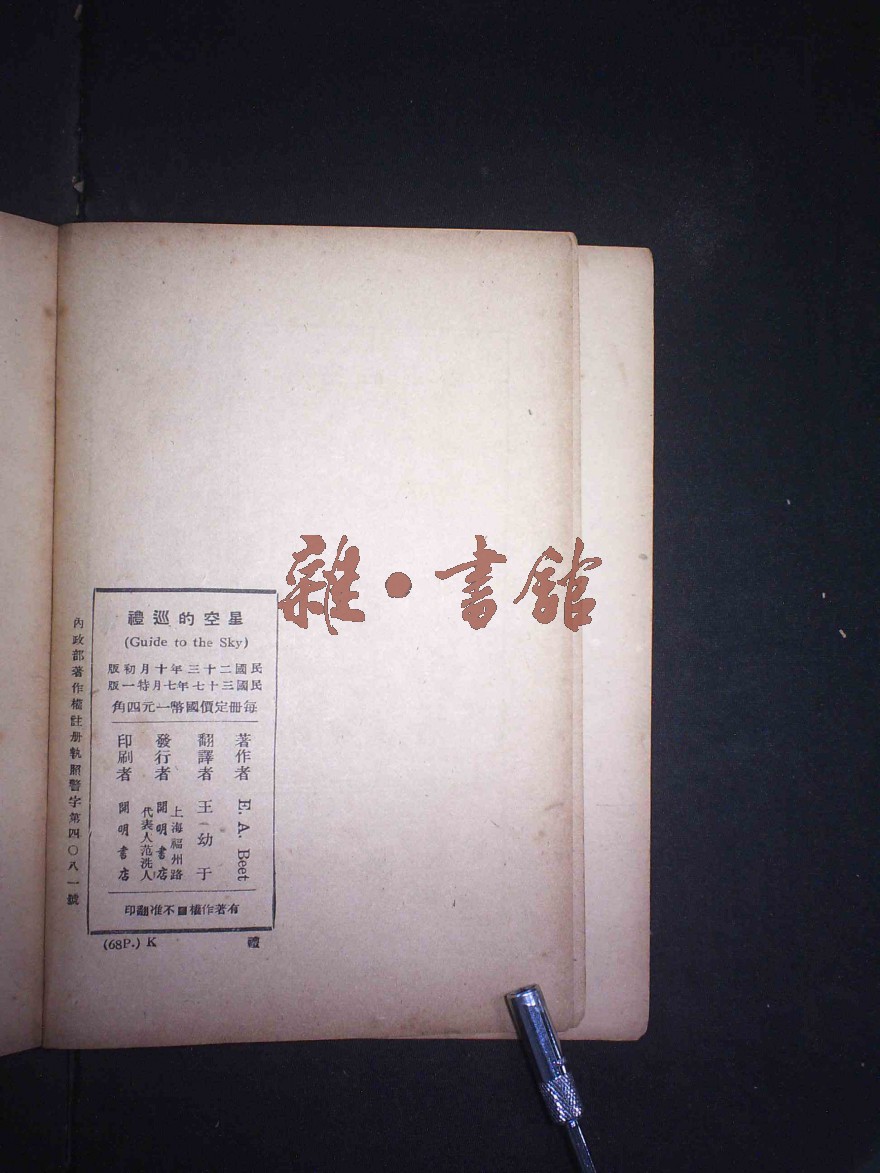 雜·書館
星空的巡禮
(Guide to the Sky)
民國二十三年十月初版
民國三十七年七月特一版
每冊定價國幣一元四角
著作者 E. A. Beet
翻譯者 王幼于
發行者 上海福州路 開明書店 代表人范洗人
印刷者 開明書店
有著作權不准翻印
(68P.) K 禮
內政部著作權註冊執照警字第四〇八一號